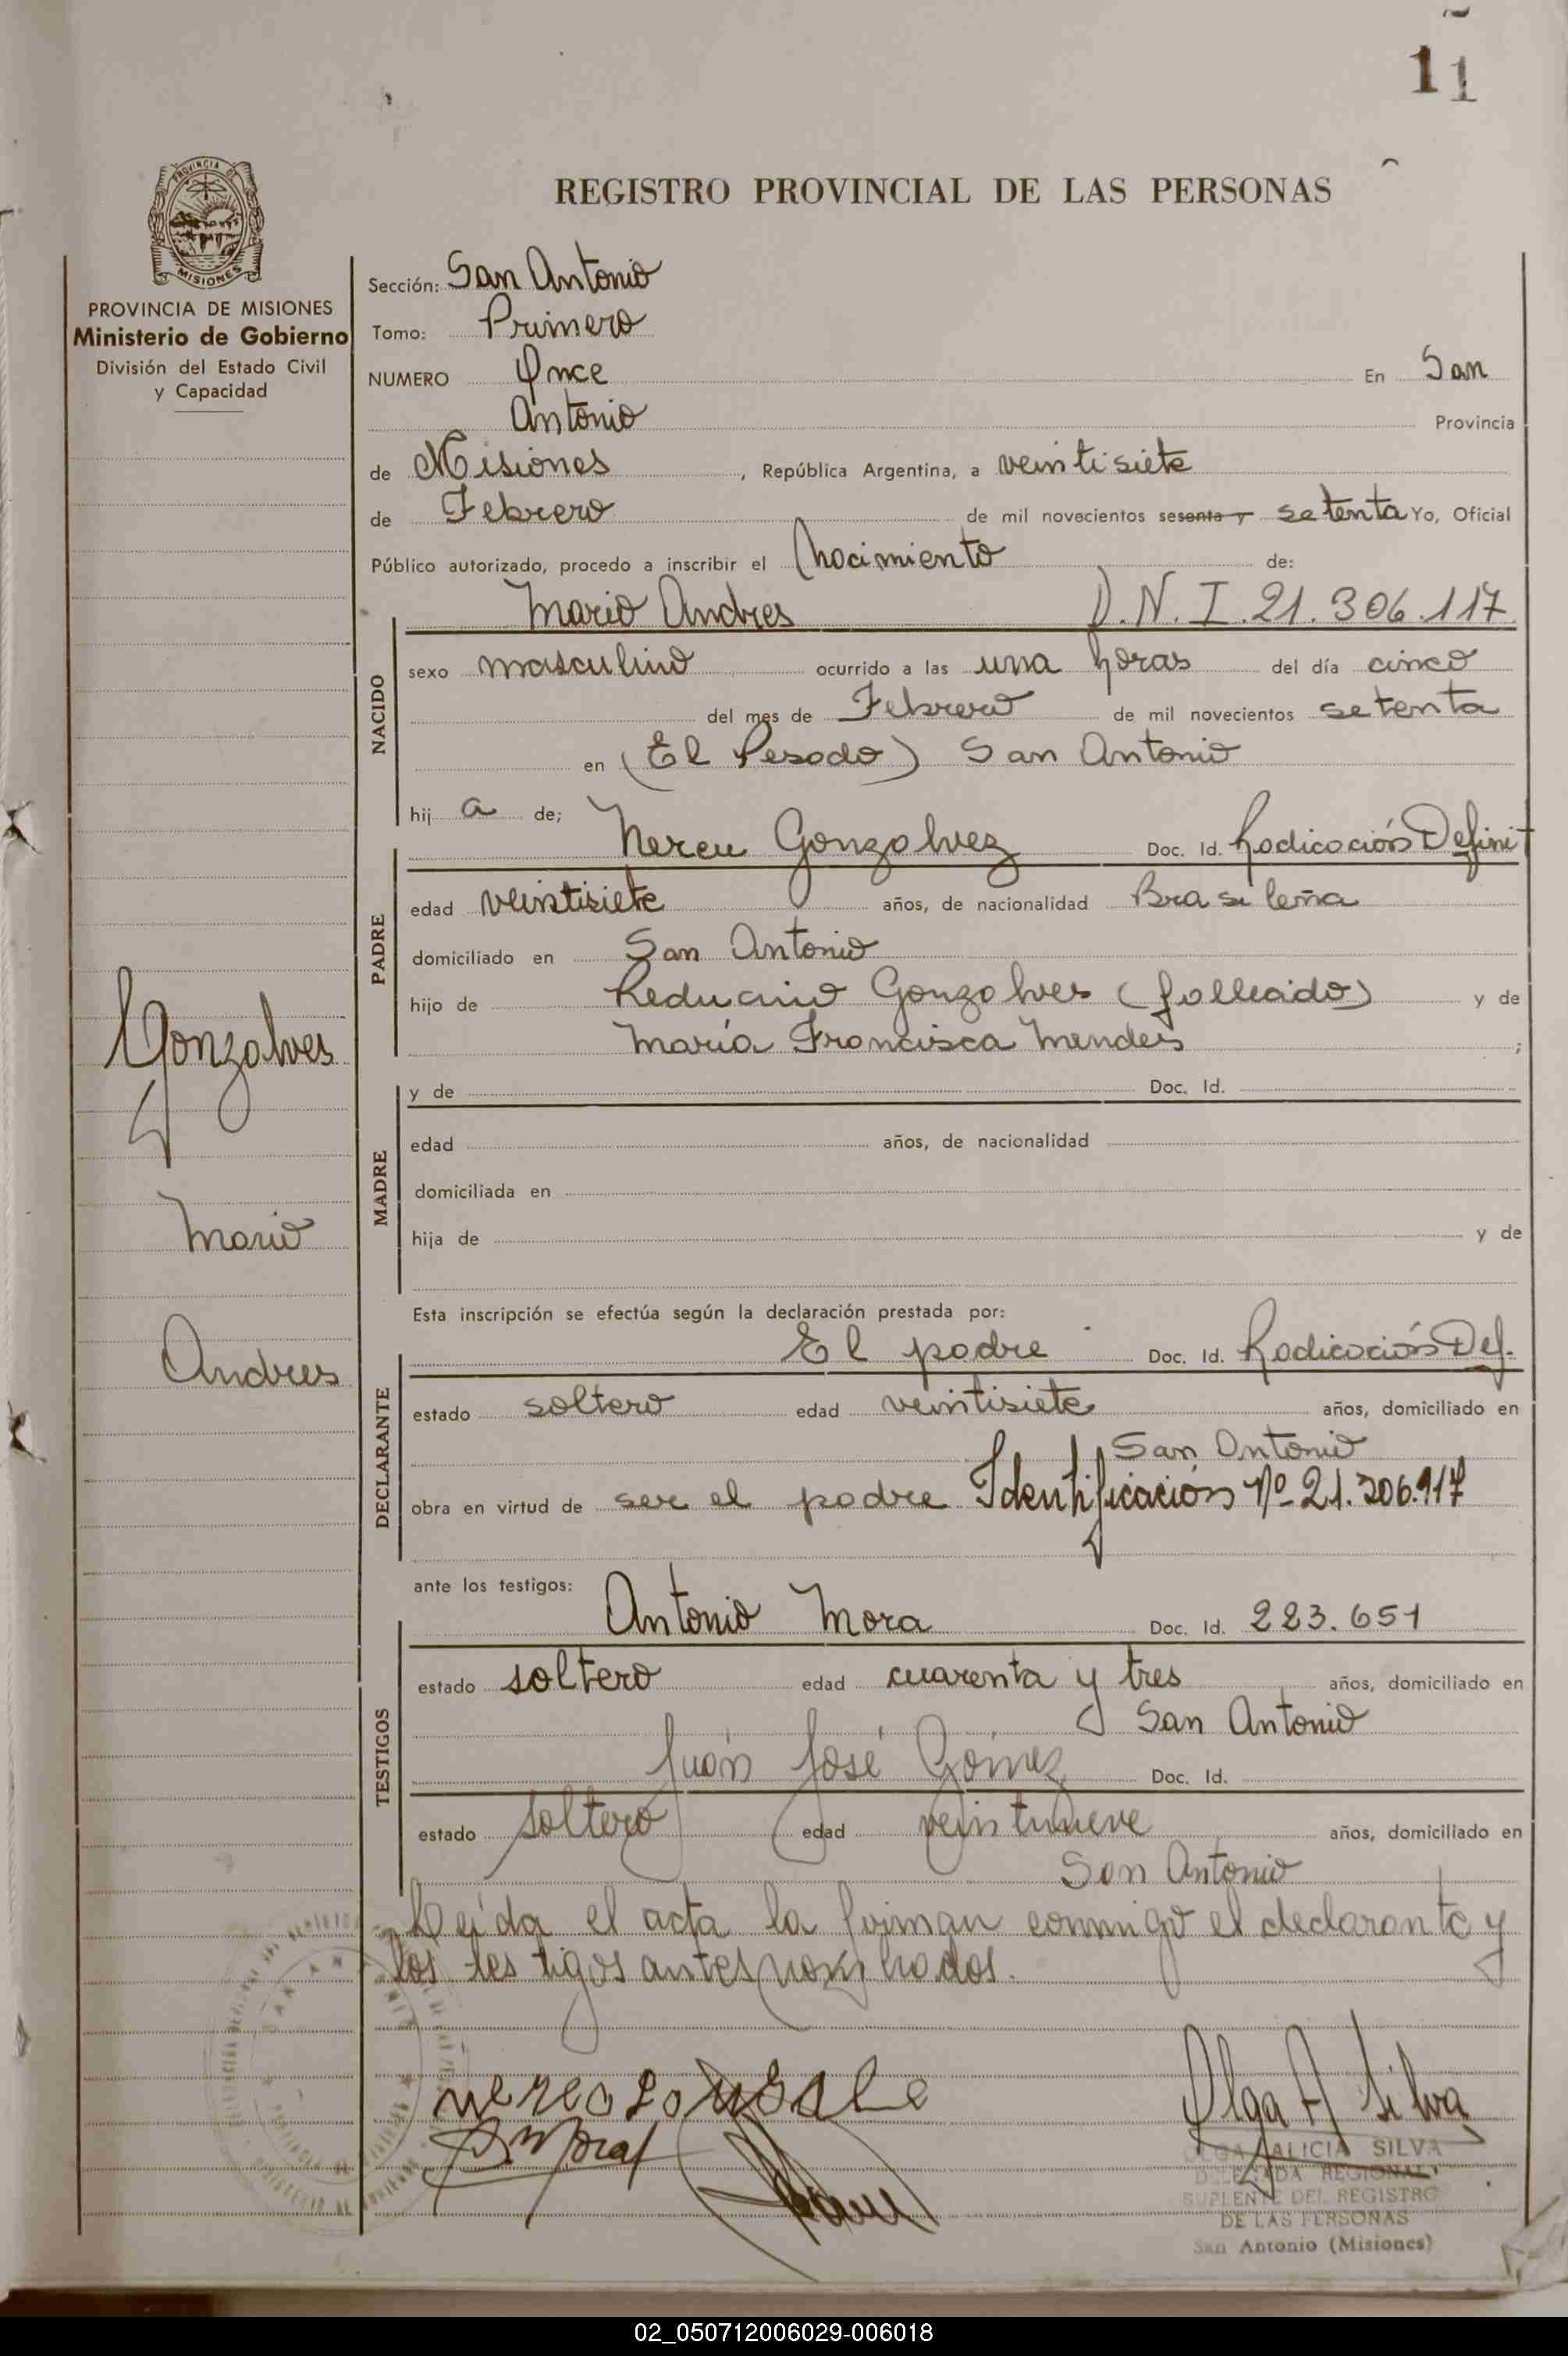 11
REGISTRO PROVINCIAL DE LAS PERSONAS
MISIONES
PROVINCIA DE MISIONES
Ministerio de Gobierno
División del Estado Civil
y Capacidad
Gonzalves
Mario
Andres
Sección: San Antonio
Tomo: Primero
NUMERO Once En San
Antonio Provincia
de Misiones, República Argentina, a veintisiete
de Febrero de mil novecientos sesenta y setenta Yo, Oficial
Público autorizado, procedo a inscribir el Nacimiento de:
Mario Andres D.N.I. 21.306.117
NACIDO
sexo masculino ocurrido a las una horas del día cinco
del mes de Febrero de mil novecientos setenta
en (El Pesado) San Antonio
hij a de;
Nereu Gonzalvez Doc. Id. Radicación Definit
PADRE
edad veintisiete años, de nacionalidad Brasileña
domiciliado en San Antonio
hijo de Gonzalves (falleaido) y de
María Francisca Mendes ;
MADRE
y de Doc. Id.
edad años, de nacionalidad
domiciliada en
hija de y de
Esta inscripción se efectúa según la declaración prestada por:
El padre Doc. Id. Radicación Def.
DECLARANTE
estado soltero edad veintisiete años, domiciliado en
San Antonio
obra en virtud de ser el padre Identificación Nº 21.306.117
ante los testigos:
Antonio Mora Doc. Id. 223.651
TESTIGOS
estado soltero edad cuarenta y tres años, domiciliado en
San Antonio
Juan José Gómez Doc. Id.
estado soltero edad veintinueve años, domiciliado en
San Antonio
Leída el acta la firman conmigo el declarante y
los testigos antes nombrados.
Olga A Silva
OLGA ALICIA SILVA
DELEGADA REGIONAL
SUPLENTE DEL REGISTRO
DE LAS PERSONAS
San Antonio (Misiones)
02_050712006029-006018